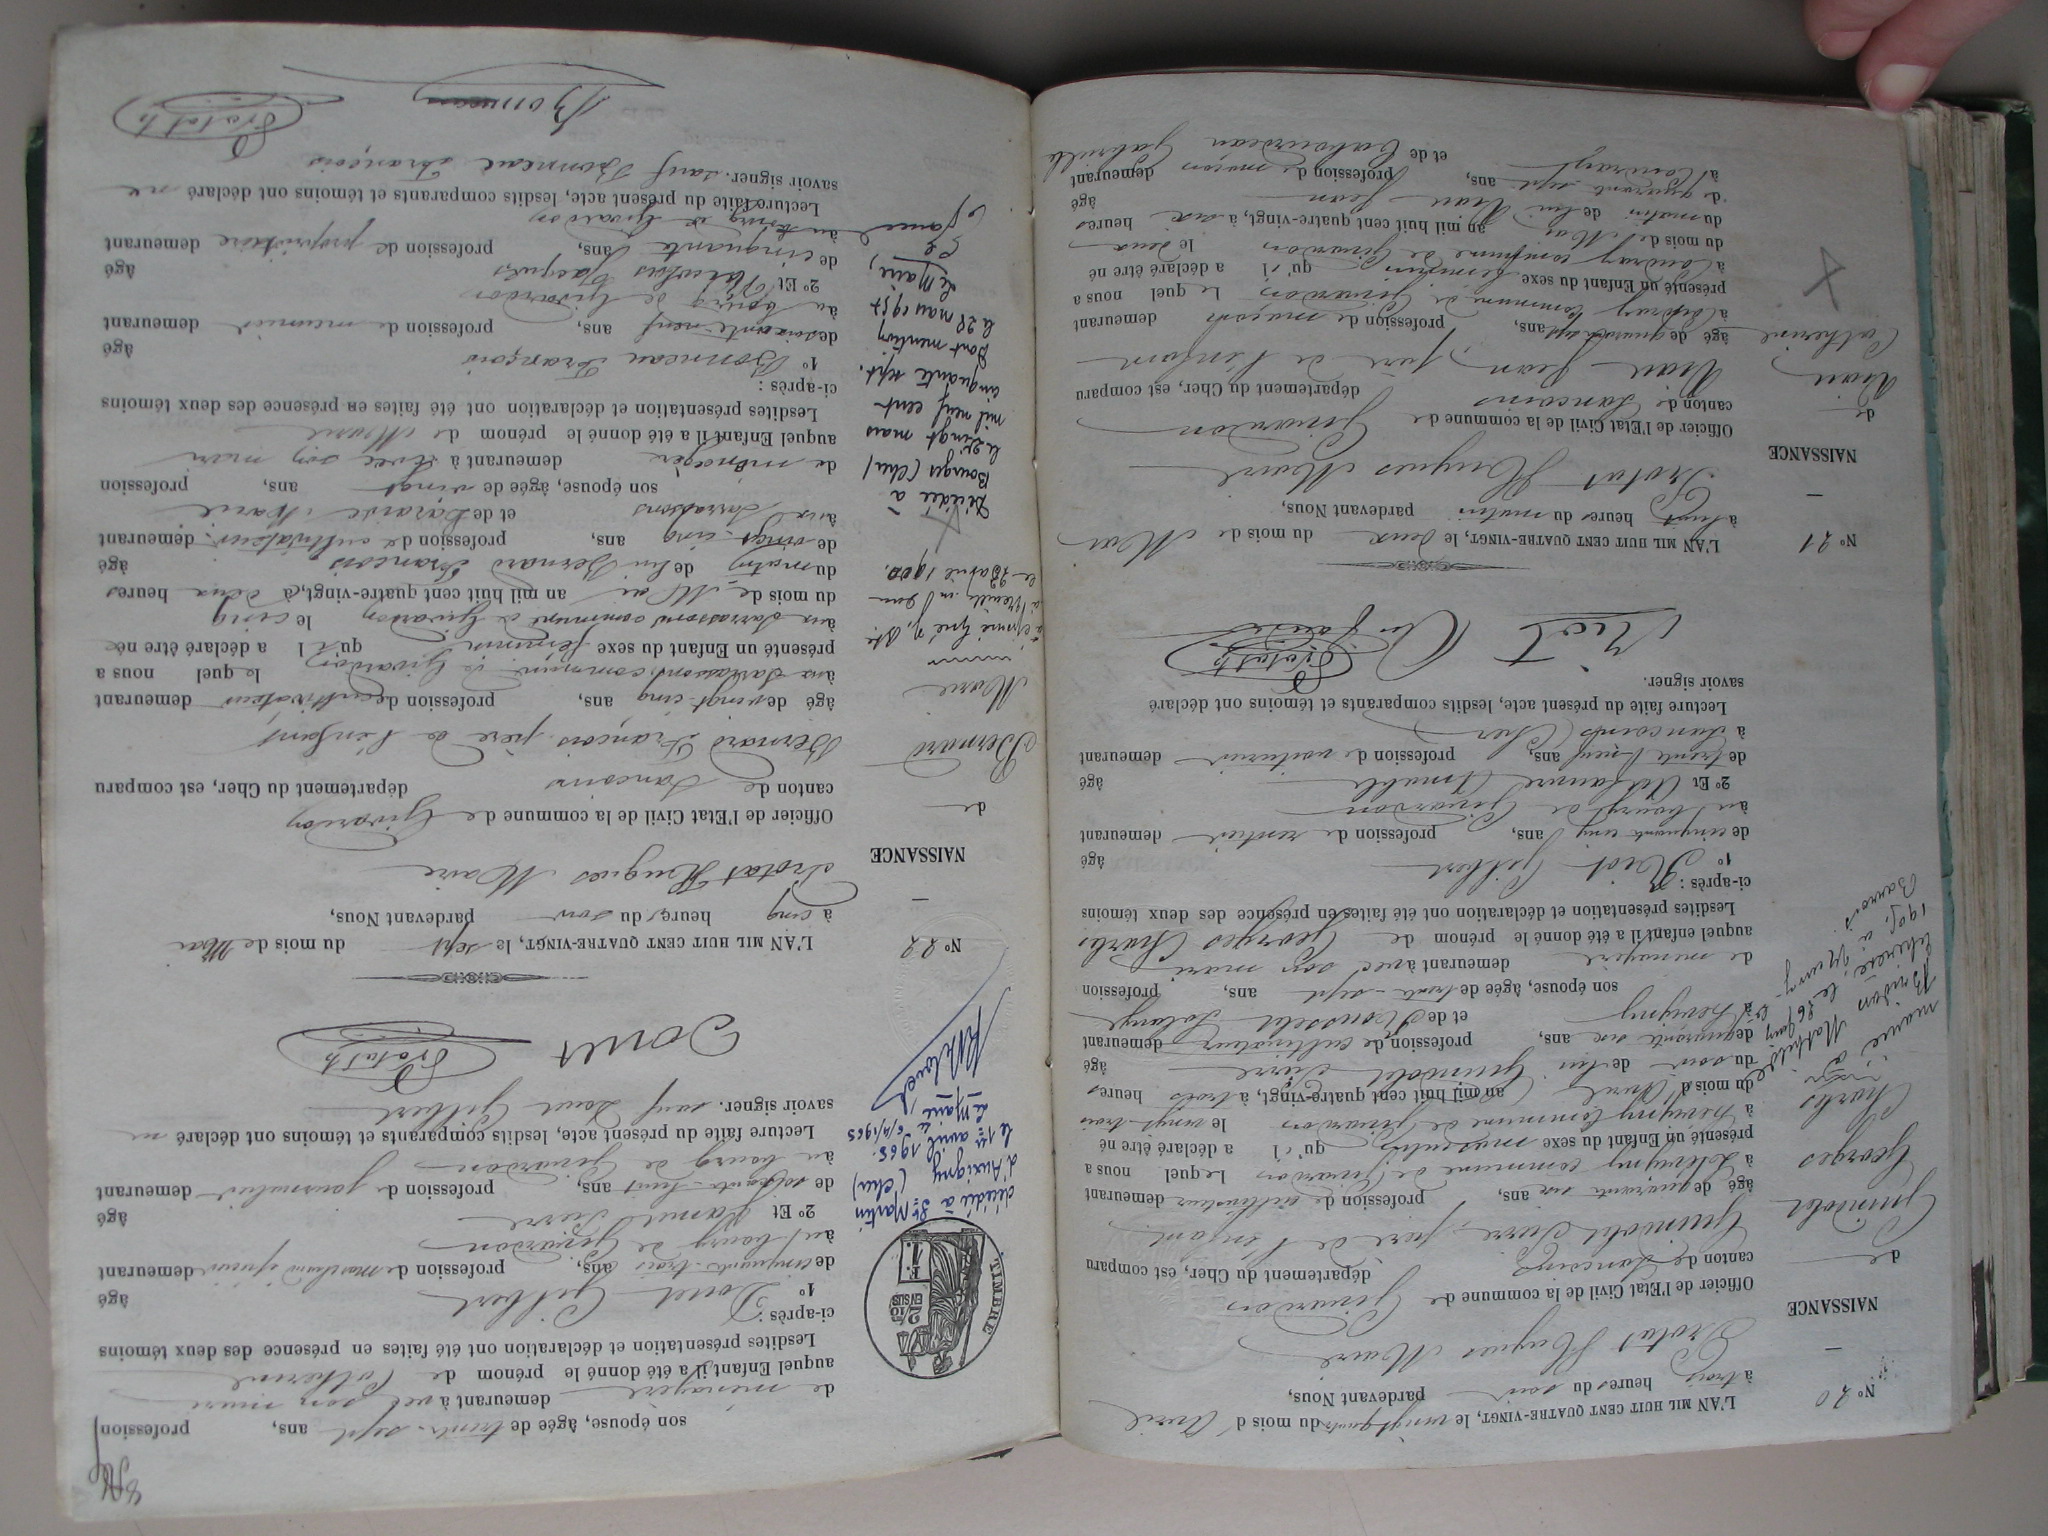 N° 20
NAISSANCE
de
Guindolet
Georges
Charles
marié à
Bridon Mathilde
le 26 Janv
1905, à
L'AN MIL HUIT CENT QUATRE-VINGT, le vingt quatre du mois d'Avril
à trois heures du soir pardevant Nous,
Protat Hugues Maire
Officier de l'Etat Civil de la commune de Givardon
canton de Sancoins département du Cher, est comparu
Guindolet Pierre, père de l'enfant
âgé de quarante six ans, profession de cultivateur demeurant
à commune de Givardon Lequel nous a
présenté un Enfant du sexe masculin qu'il a déclaré être né
à commune de Givardon le vingt-trois
du mois d'Avril an mil huit cent quatre-vingt, à trois heures
du soir de lui Guindolet Pierre âgé
de quarante six ans, profession de cultivateur demeurant
à et de Rousselet Solange
son épouse, âgée de trente-sept ans, profession
de ménagère demeurant à avec son mari
auquel enfant il a été donné le prénom de Georges Charles
Lesdites présentation et déclaration ont été faites en présence des deux témoins
ci-après :
1° Riot Gilbert âgé
de cinquante cinq ans, profession de rentier demeurant
au bourg de Givardon
2° Et Amable âgé
de trente neuf ans, profession de voiturier demeurant
à Sancoins (Cher)
Lecture faite du présent acte, lesdits comparants et témoins ont déclaré
savoir signer.
Riot Protat h
N° 21
NAISSANCE
de
Riau
Catherine
L'AN MIL HUIT CENT QUATRE-VINGT, le deux du mois de Mai
à huit heures du matin pardevant Nous,
Protat Hugues Maire
Officier de l'Etat Civil de la commune de Givardon
canton de Sancoins département du Cher, est comparu
Riau Jean, père de l'enfant
âgé de quarante sept ans, profession de maçon demeurant
à Coudray commune de Givardon Lequel nous a
présenté un Enfant du sexe féminin qu'il a déclaré être né
à Coudray commune de Givardon le deux
du mois de Mai an mil huit cent quatre-vingt, à six heures
du matin de lui Riau Jean âgé
de quarante sept ans, profession de maçon demeurant
à Coudray et de Cabourdeau Gabrielle
son épouse, âgée de trente-sept ans, profession
de ménagère demeurant à avec son mari
auquel Enfant il a été donné le prénom de Catherine
Lesdites présentation et déclaration ont été faites en présence des deux témoins
ci-après :
1° Douet Gilbert âgé
de cinquante-trois ans, profession de marchand épicier demeurant
au bourg de Givardon
2° Et Lamel Pierre âgé
de soixante-huit ans, profession de journalier demeurant
au bourg de Givardon
Lecture faite du présent acte, lesdits comparants et témoins ont déclaré ne
savoir signer. sauf Douet Gilbert
Douet Protat h
TIMBRE
2/10
EN SUS
1 F.
décédée à St Martin
d'Auxigny (Cher)
le 1er avril 1965.
le 6/4/1965
Le Maire,
N° 22
NAISSANCE
de
Bernard
Marie
le 28 avril 1900.
Décédée à
Bourges (Cher)
le vingt mars
mil neuf cent
cinquante sept.
Dont mention
le 28 mars 1957
Le Maire,
L'AN MIL HUIT CENT QUATRE-VINGT, le sept du mois de Mai
à cinq heures du soir pardevant Nous,
Protat Hugues Maire
Officier de l'Etat Civil de la commune de Givardon
canton de Sancoins département du Cher, est comparu
Bernard François père de l'enfant
âgé de vingt-cinq ans, profession de cultivateur demeurant
aux Sarrassons commune de Givardon lequel nous a
présenté un Enfant du sexe féminin qu'il a déclaré être née
aux Sarrassons commune de Givardon le cinq
du mois de Mai an mil huit cent quatre-vingt, à deux heures
du matin de lui Bernard François âgé
de vingt-cinq ans, profession de cultivateur demeurant
aux Sarrassons et de Marie
son épouse, âgée de vingt ans, profession
de ménagère demeurant à avec son mari
auquel Enfant il a été donné le prénom de Marie
Lesdites présentation et déclaration ont été faites en présence des deux témoins
ci-après :
1° Bonneau François âgé
de soixante-neuf ans, profession de meunier demeurant
au bourg de Givardon
2° Et Jacques âgé
de cinquante ans, profession de propriétaire demeurant
au bourg de Givardon
Lecture faite du présent acte, lesdits comparants et témoins ont déclaré ne
savoir signer. sauf Bonneau François
Bonneau Protat h